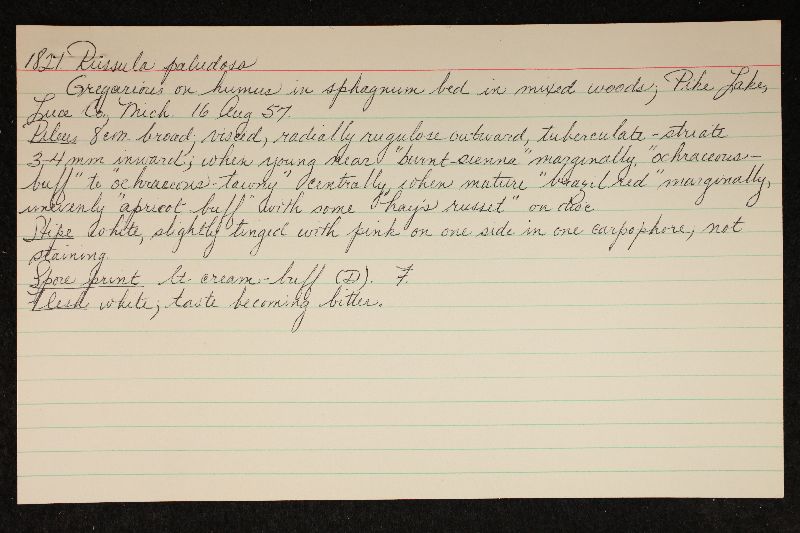 1821 Russula paludosa
Gregarious on humus in sphagnum bed in mixed woods; Pike Lake,
Luce Co, Mich. 16 Aug 57.
Pileus 8 cm broad, viscid, radially rugulose outward, tuberculate-striate
3-4 mm inward; when young near "burnt-sienna" marginally, "ochraceous-
buff" to "ochraceous-tawny" centrally, when mature "brazil red" marginally,
unevenly "apricot buff" with some "hay's russet" on disc
Stipe white, slightly tinged with pink on one side in one carpophore, not
staining.
Spore print lt cream-buff (D). F.
Flesh white; taste becoming bitter.